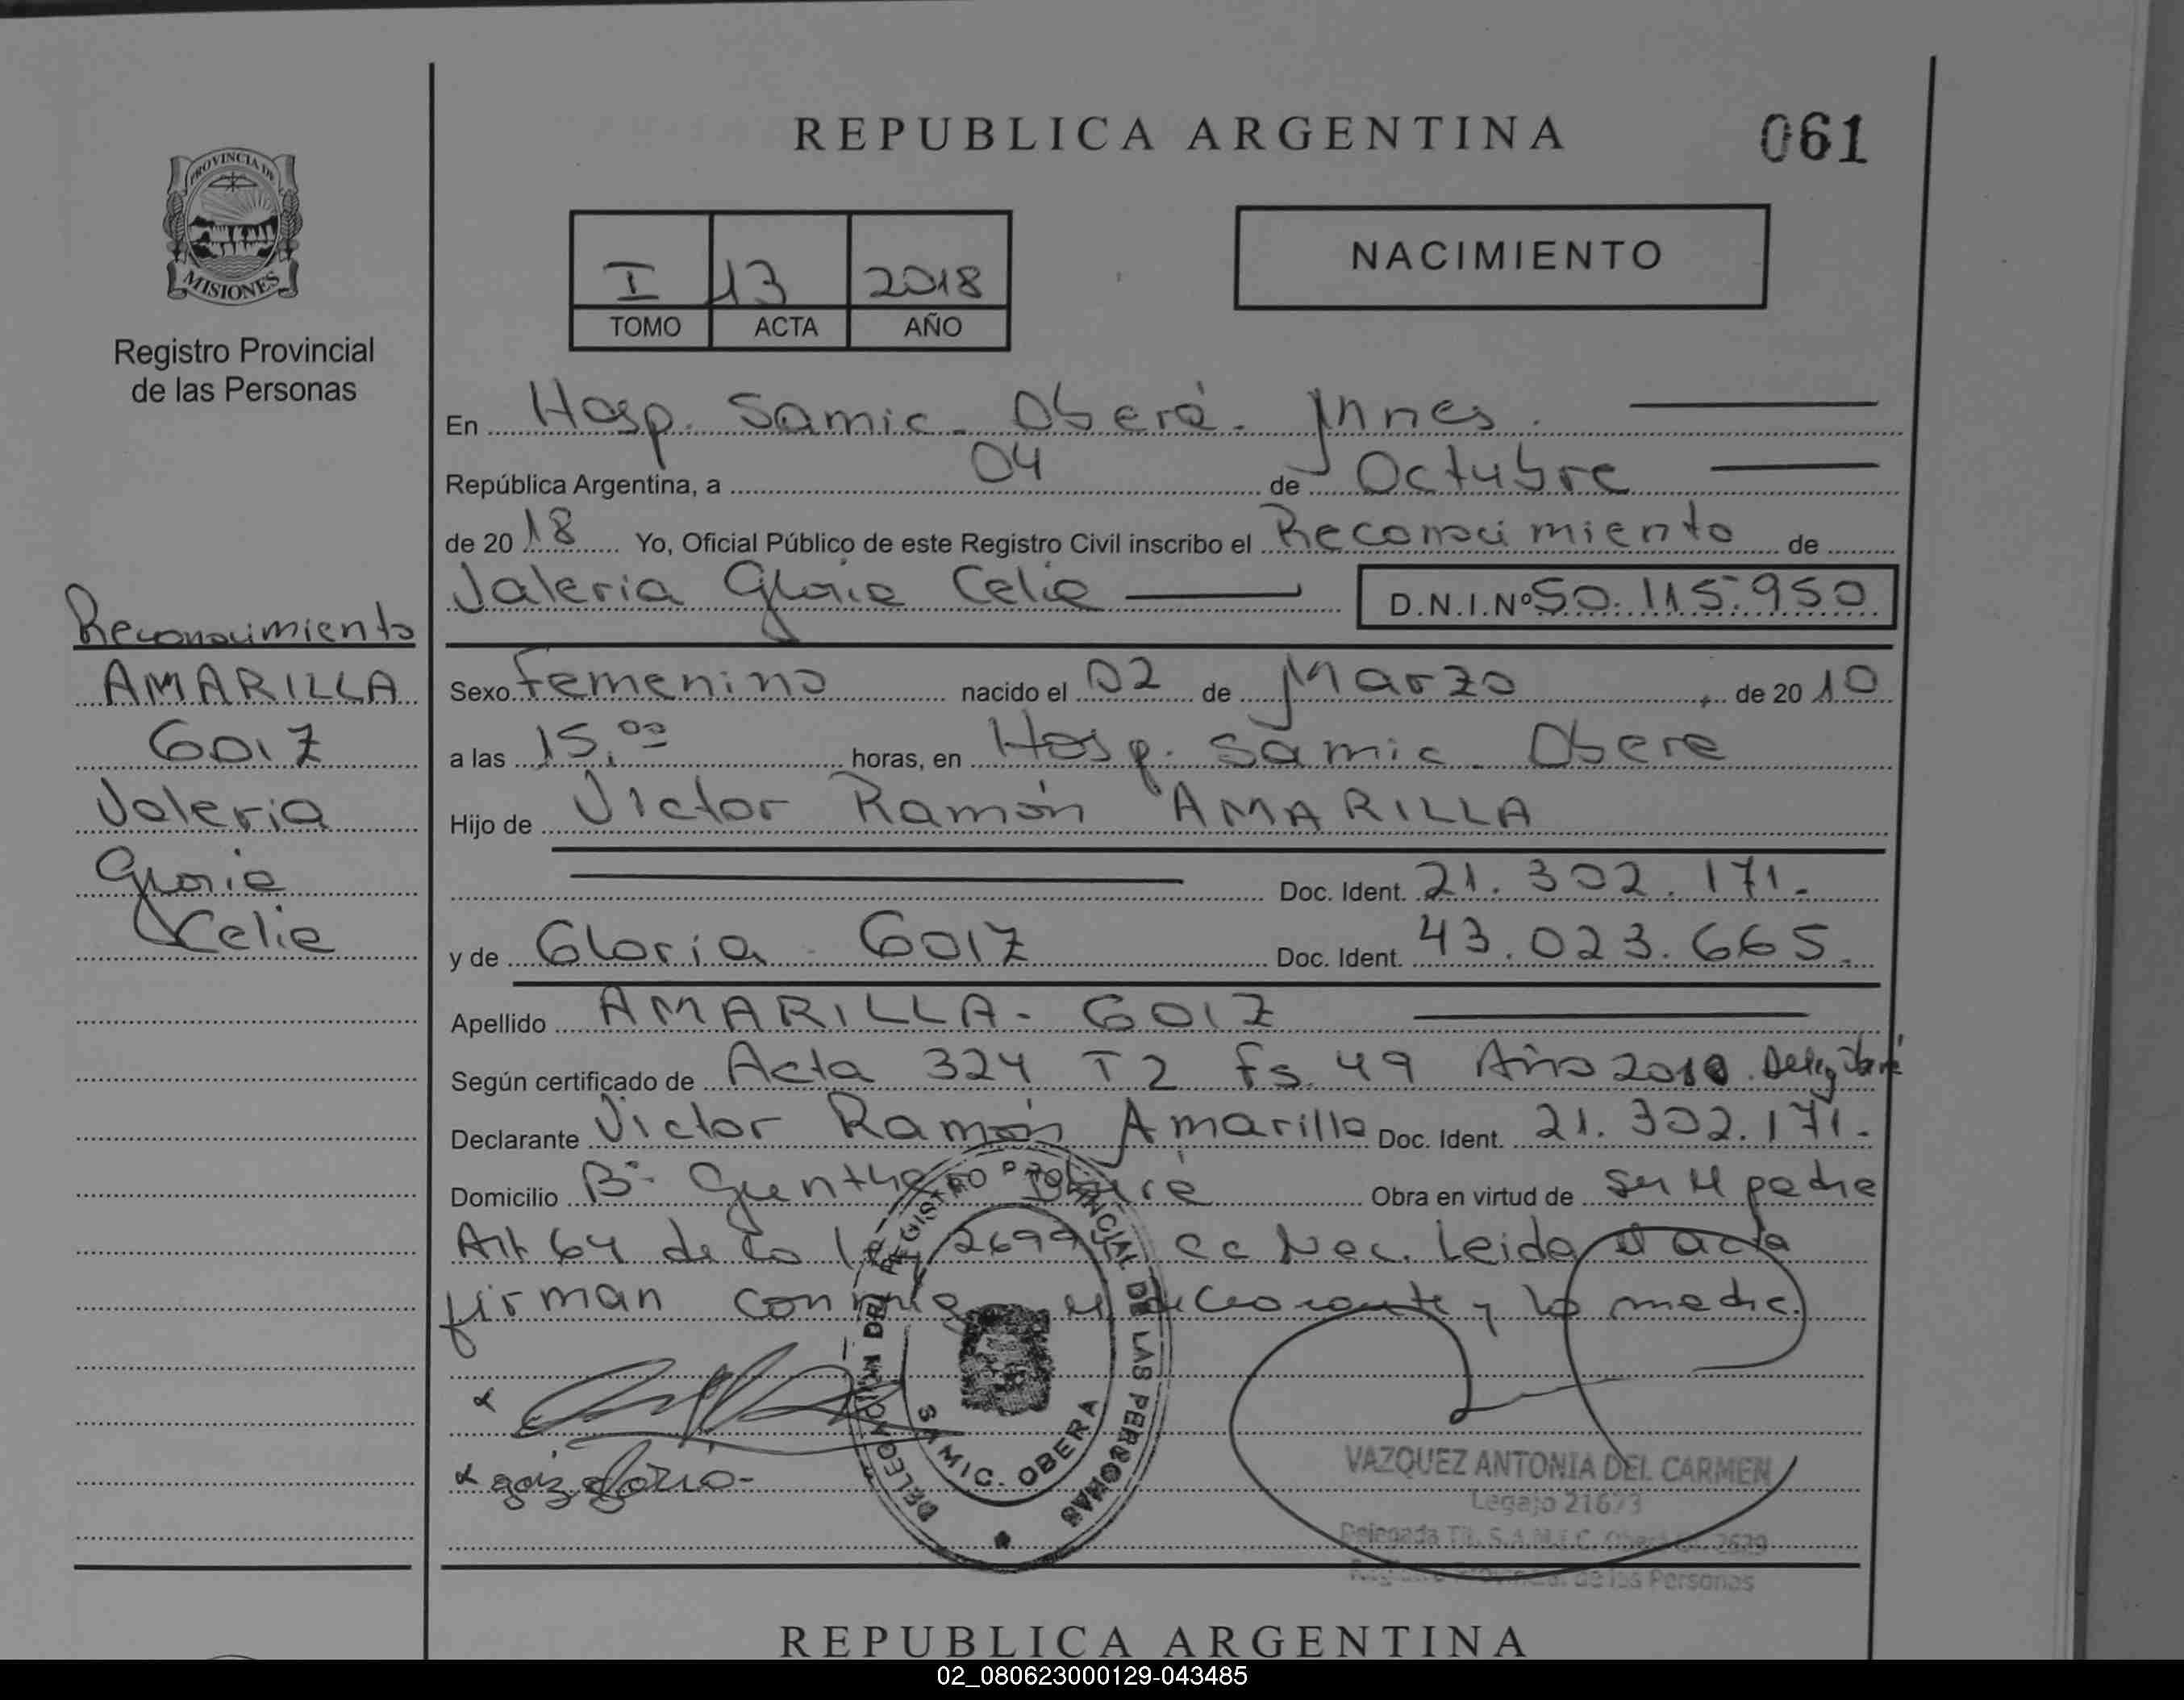 REPUBLICA ARGENTINA
061
PROVINCIA DE
MISIONES
Registro Provincial
de las Personas
I 13 2018
TOMO ACTA AÑO
NACIMIENTO
En Hosp. Samic - Oberá -
República Argentina, a 04 de Octubre
de 20 18 Yo, Oficial Público de este Registro Civil inscribo el Reconocimiento de
Valeria Gloria Celia D.N.I.Nº 50.115.950
Sexo Femenino nacido el 02 de Marzo de 20 10
a las 15,00 horas, en Hosp. Samic - Obera
Hijo de Victor Ramón AMARILLA
Doc. Ident. 21.302.171.
y de Gloria GOIZ Doc. Ident. 43.023.665.
Apellido AMARILLA - GOIZ
Según certificado de Acta 324 T2 Fs 49 Año 2010
Declarante Victor Ramón Amarilla Doc. Ident. 21.302.171.
Domicilio Bº Gunther Obera Obra en virtud de ser el padre
Art 64 de la Ley 26994 cc Nac. Leida el acta
firman conmigo el declarante y la madre.
goiz gloria
Reconocimiento
AMARILLA
GOIZ
Valeria
Gloria
Celia
DELEGACION DEL REGISTRO PROVINCIAL DE LAS PERSONAS
SAMIC. OBERA
VAZQUEZ ANTONIA DEL CARMEN
Legajo 21673
Registro Provincial de las Personas
REPUBLICA ARGENTINA
02_080623000129-043485